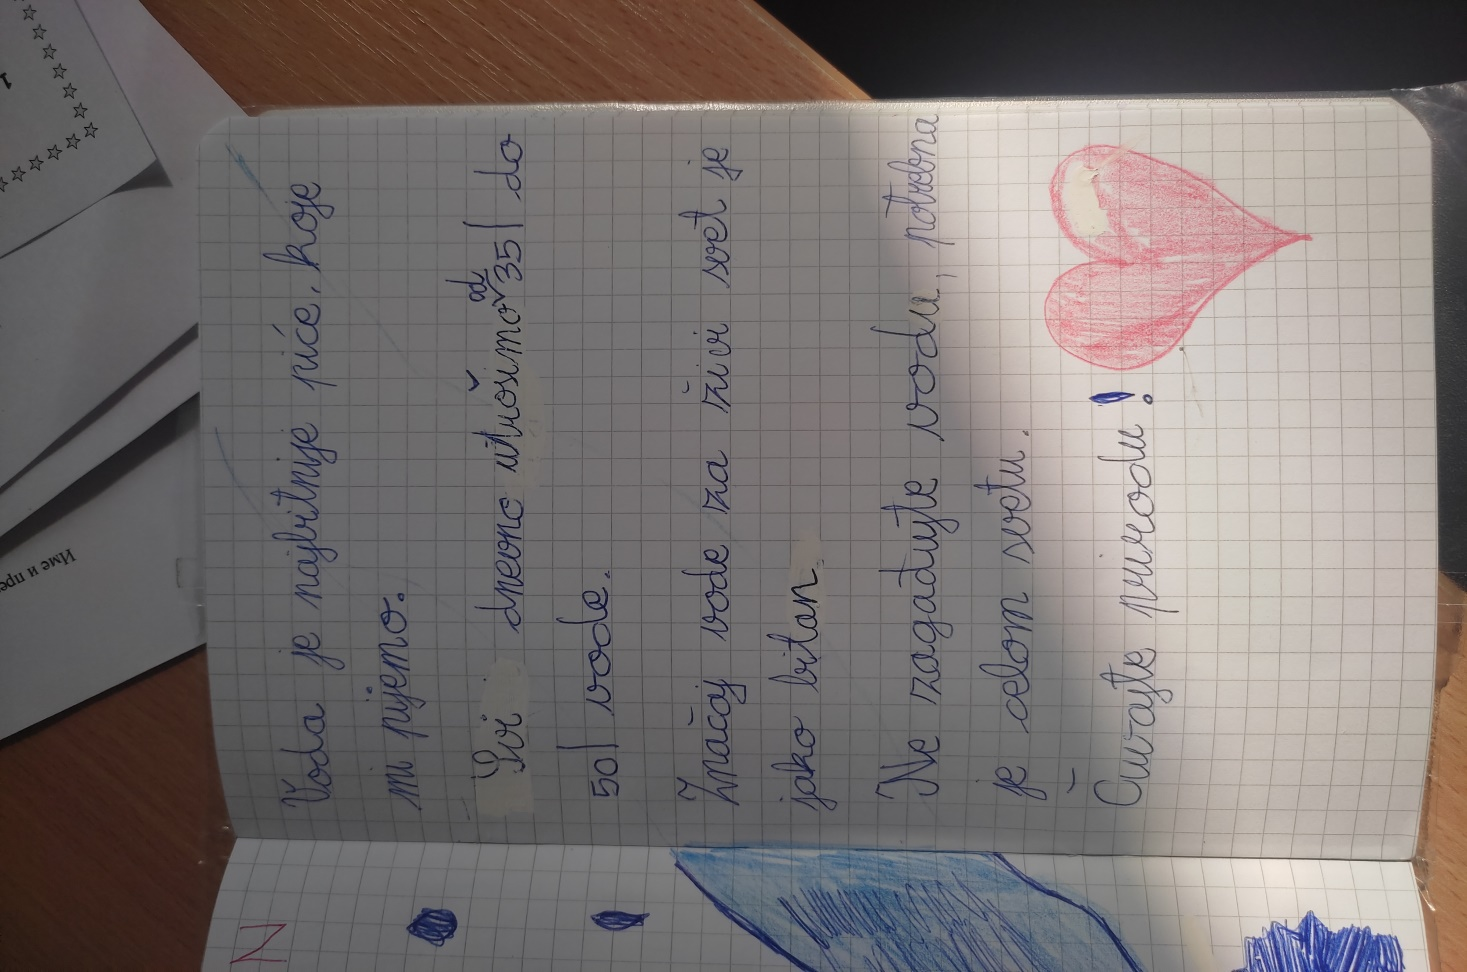 Voda je najbitnije piće, koje
mi pijemo.
Svi dnevno utrošimo od 35l do
50l vode.
Značaj vode za živi svet je
jako bitan.
Ne zagađujte vodu, potrebna
je celom svetu.
Čuvajte prirodu!
N
Име и пре
1